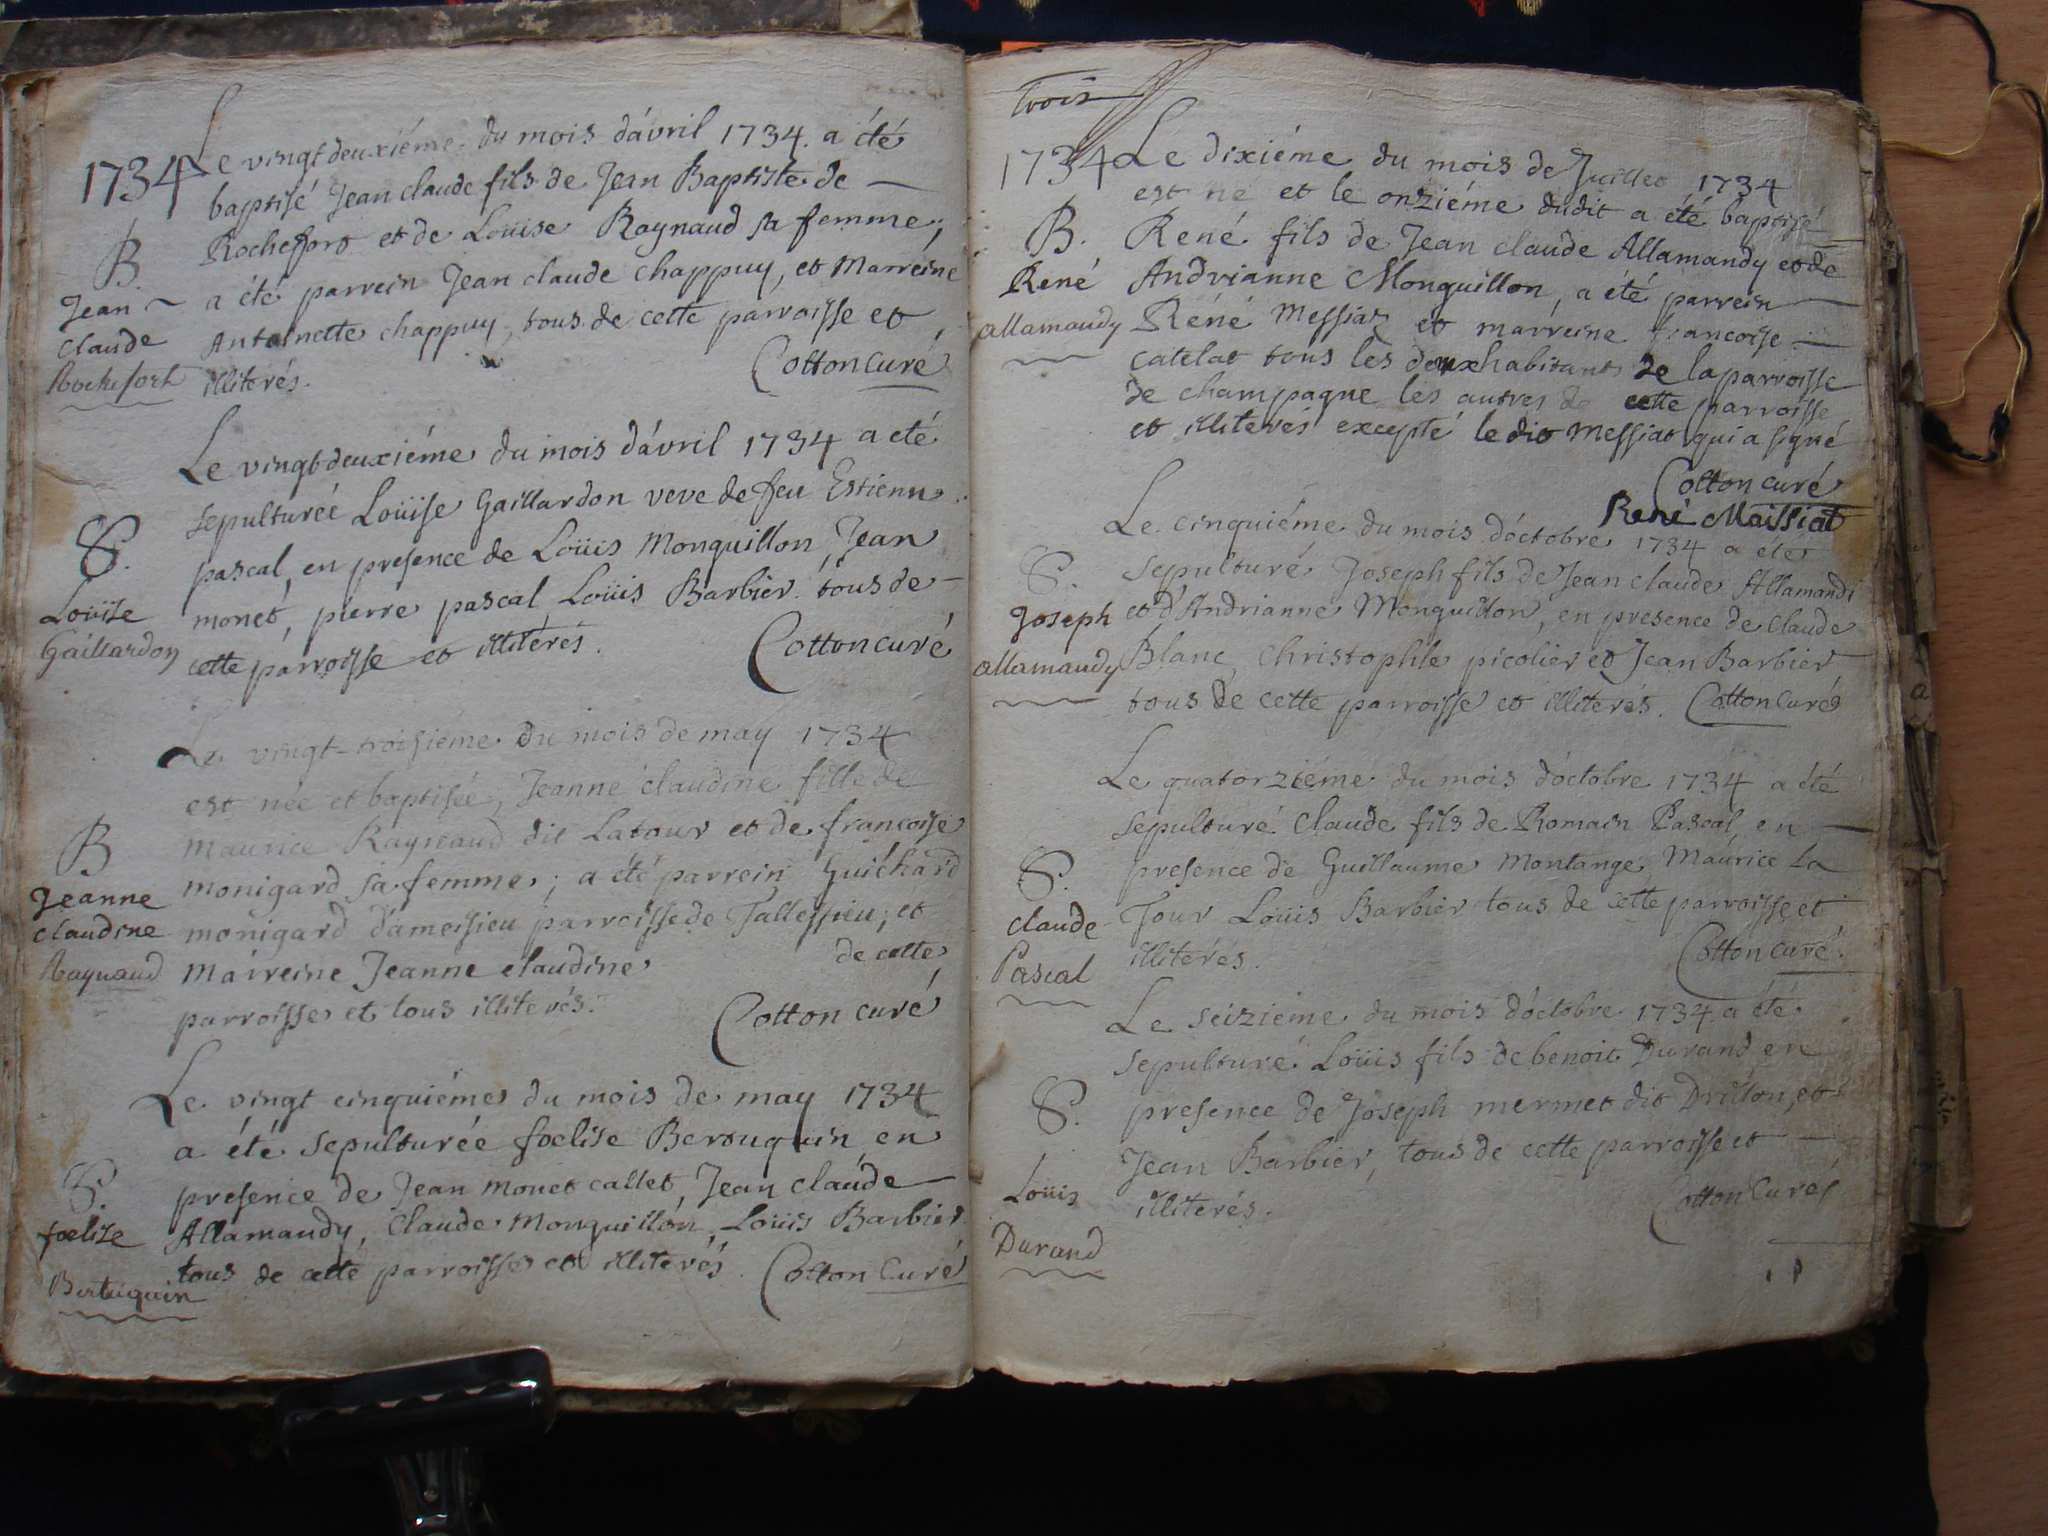 1734
Le vingt deuxiéme du mois d'avril 1734 a été
baptisé Jean claude fils de Jean Baptiste de
Rochefort et de Loüise Raynaud sa femme,
a été parrein Jean claude chappuy, et Marreine
Antoinette chappuy, tous de cette parroisse et
illiterés.
Cotton Curé
B.
Jean
claude
Rochefort
Le vingt deuxiéme du mois d'avril 1734 a eté
sepulturéé Loüise Gaillardon veve de feu Estienne
pascal, en presence de Loüis Monguillon, Jean
monet, pierre pascal Loüis Barbier tous de
cette parroisse et illiterés.
Cotton curé
S.
Loüise
Gaillardon
Le vingt-troisieme du mois de may 1734
est née et baptisée, Jeanne claudine fille de
Maurice Raynaud dit Latour et de francoise
monigard sa femme; a été parrein Guichard
monigard d'ameisieu parroisse de Tallessieu; et
Marreine Jeanne claudine de cette
parroisse et tous illiterés.
Cotton curé
B
Jeanne
claudine
Raynaud
Le vingt cinquiéme du mois de may 1734
a été sepulturée foelise Bertuquin, en
presence de Jean Monet callet, Jean claude
Allamandy, Claude Monguillon, Loüis Barbier
tous de cette parroisse et illiterés.
Cotton Curé
S.
foelise
Bertuquin
trois
1734
Le dixiéme du mois de Juillet 1734
est né et le onziéme dudit a été baptisé
René fils de Jean claude Allamandy et de
Andrianne Monguillon, a été parrein
Réné Messiat et marreine francoise
catelat tous les deux habitants de la parroisse
de champagne les autres de cette parroisse
et illiterés excepté le dit Messiat qui a signé
Cotton curé
René Maissiat
B.
René
allamandy
Le cinquiéme du mois d'octobre 1734 a été
sepulturé Joseph fils de Jean claude Allamandi
et d'Andrianne Monguillon, en presence de claude
Blanc, christophle picolier et Jean Barbier
tous de cette parroisse et illiterés. Cotton Curé
S.
Joseph
allamandy
Le quatorziéme du mois d'octobre 1734 a été
sepulturé Claude fils de Romain Pascal, en
presence de Guillaume Montange, Maurice La
Tour Loüis Barbier tous de cette parroisse et
illiterés.
Cotton curé
S.
claude
Pascal
Le seiziéme du mois d'octobre 1734 a été
sepulturé Loüis fils de benoit Durand en
presence de Joseph mermet dit Drillon, et
Jean Barbier, tous de cette parroisse et
illiterés.
Cotton Curé
S.
Loüis
Durand